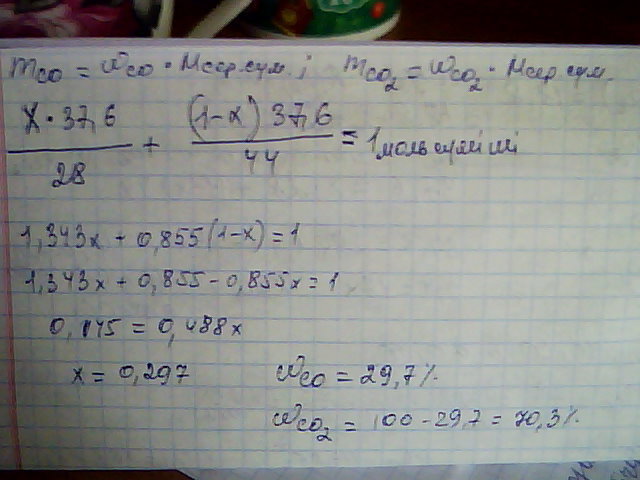 mCO = ωCO · Mсер.сум.; mCO₂ = ωCO₂ · Mсер.сум.
x · 37,6 / 28 + (1-x) 37,6 / 44 = 1 моль суміші
1,343x + 0,855(1-x) = 1
1,343x + 0,855 - 0,855x = 1
0,145 = 0,488x
x = 0,297 ωCO = 29,7%
ωCO₂ = 100 - 29,7 = 70,3%